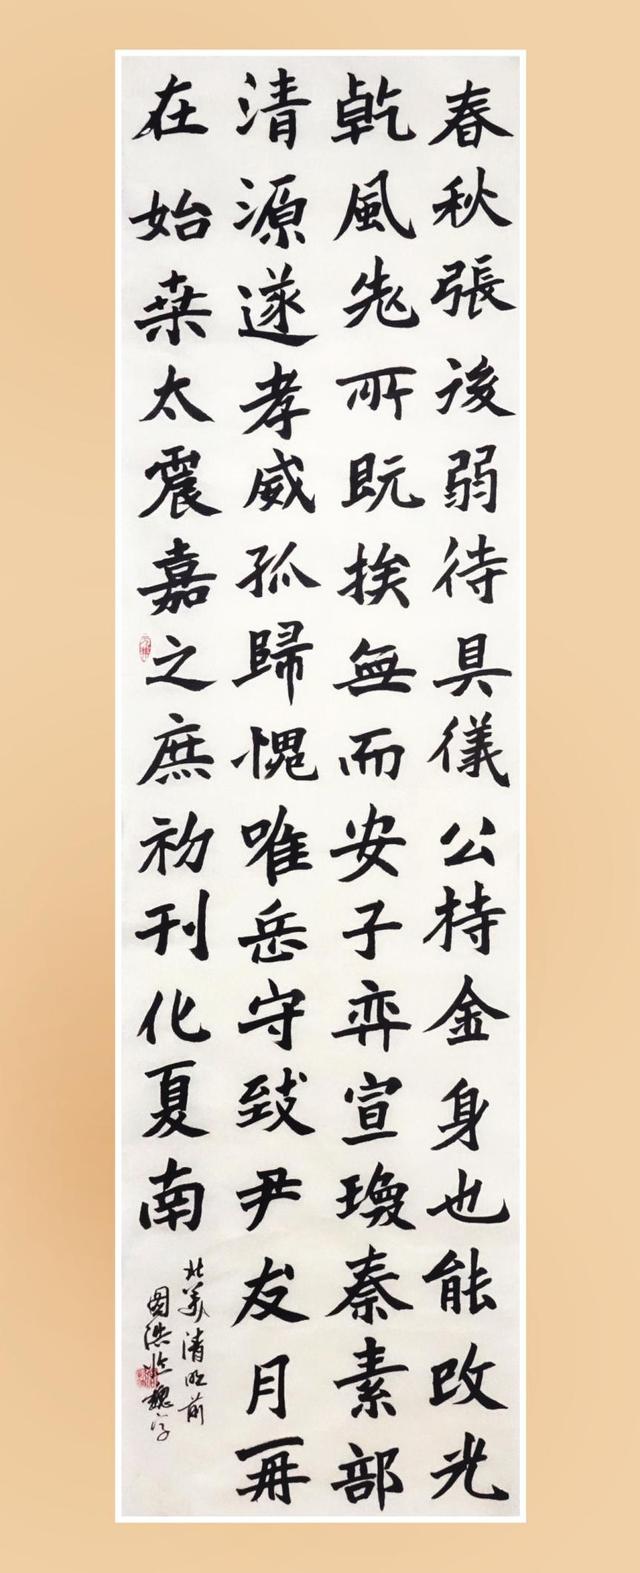 春秋張後弱待具儀公持金身也能改光
乾風先所既挨無而安子弈宣瓊秦素部
清源遂孝威孤歸愧唯岳守致尹友月再
在始桑太震嘉之庶初刊化夏南
北美清明前
國浩臨魏字